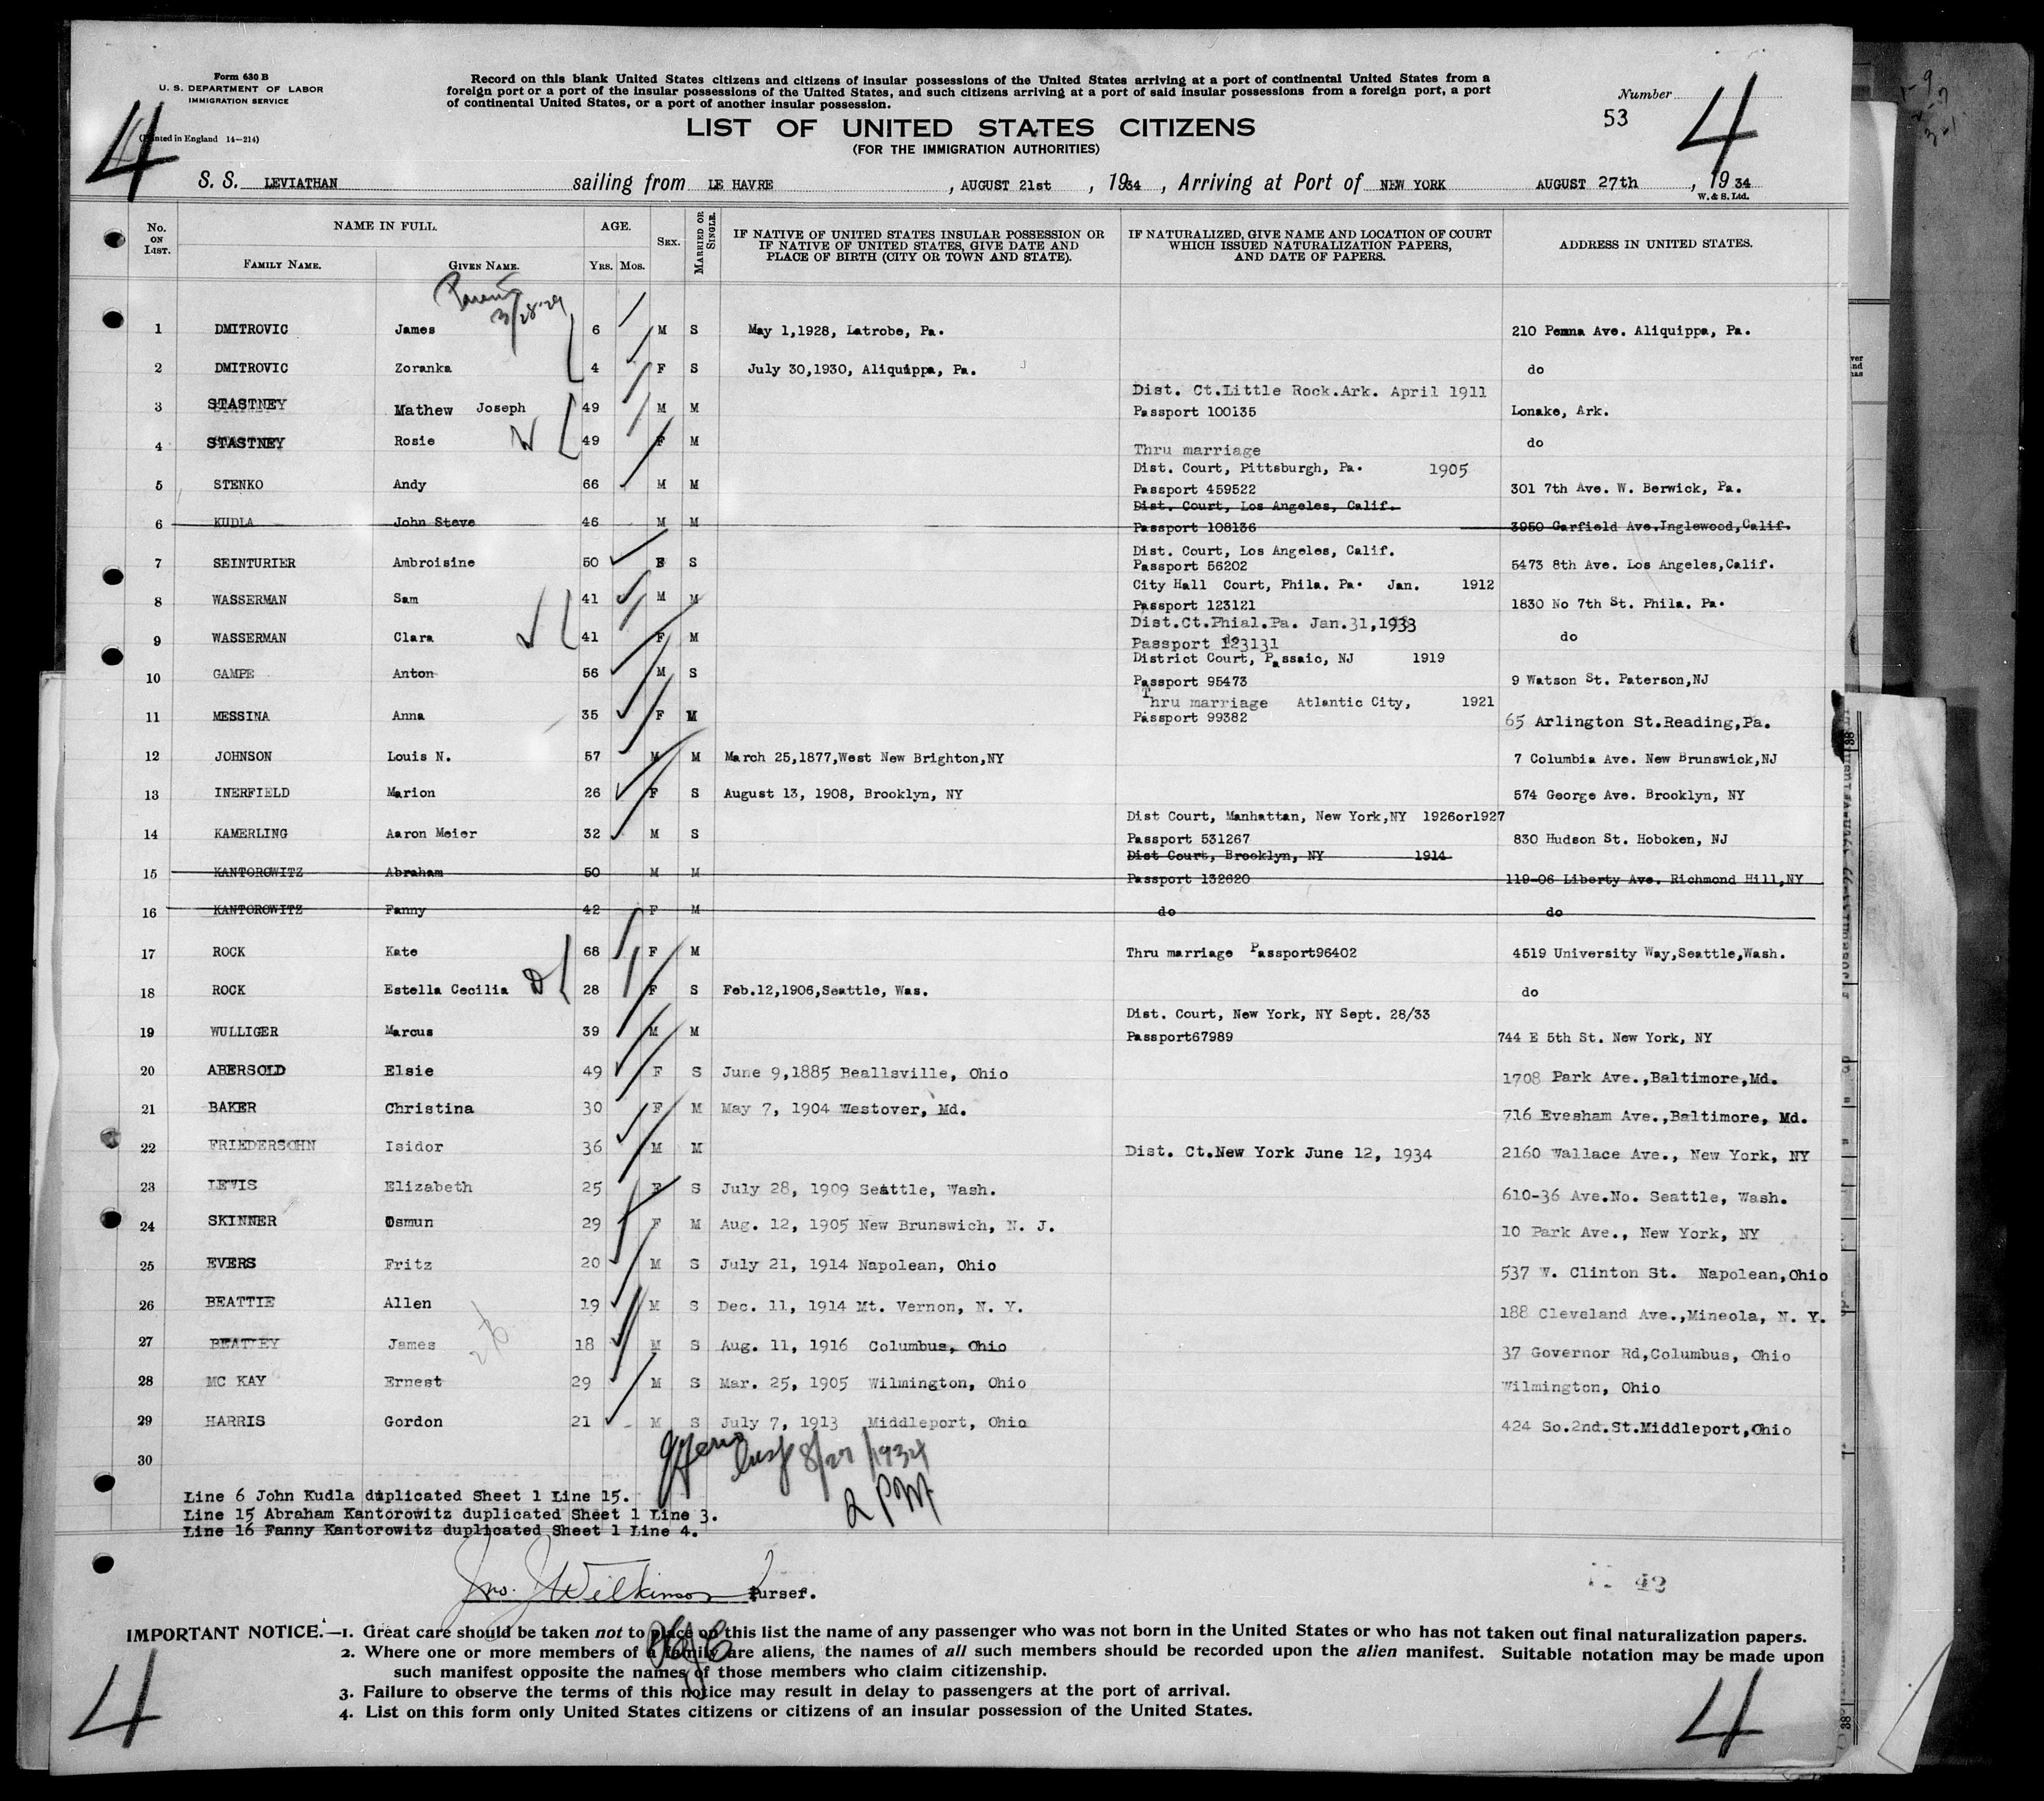 Form 630 B
U. S. DEPARTMENT OF LABOR
IMMIGRATION SERVICE
(Printed in England 14—214)
Record on this blank United States citizens and citizens of insular possessions of the United States arriving at a port of continental United States from a
foreign port or a port of the insular possessions of the United States, and such citizens arriving at a port of said insular possessions from a foreign port, a port
of continental United States, or a port of another insular possession.
Number
53
4
4
LIST OF UNITED STATES CITIZENS
(FOR THE IMMIGRATION AUTHORITIES)
S. S. LEVIATHAN sailing from LE HAVRE , AUGUST 21st , 1934 , Arriving at Port of NEW YORK AUGUST 27th , 1934
W. & S. Ltd.
No. ON LIST. NAME IN FULL. AGE. SEX. MARRIED OR SINGLE. IF NATIVE OF UNITED STATES INSULAR POSSESSION OR IF NATIVE OF UNITED STATES, GIVE DATE AND PLACE OF BIRTH (CITY OR TOWN AND STATE). IF NATURALIZED, GIVE NAME AND LOCATION OF COURT WHICH ISSUED NATURALIZATION PAPERS, AND DATE OF PAPERS. ADDRESS IN UNITED STATES.
FAMILY NAME. GIVEN NAME. YRS. MOS.
3/28-29
1 DMITROVIC James 6 M S May 1,1928, Latrobe, Pa. 210 Penna Ave. Aliquippa, Pa.
2 DMITROVIC Zoranka 4 F S July 30,1930, Aliquippa, Pa. do
Dist. Ct.Little Rock.Ark. April 1911
3 STASTNEY Mathew Joseph 49 M M Passport 100135 Lonake, Ark.
4 STASTNEY Rosie 49 F M Thru marriage do
Dist. Court, Pittsburgh, Pa. 1905
5 STENKO Andy 66 M M Passport 459522 301 7th Ave. W. Berwick, Pa.
Dist. Court, Los Angeles, Calif.
6 KUDLA John Steve 46 M M Passport 108136 3950 Garfield Ave.Inglewood,Calif.
Dist. Court, Los Angeles, Calif.
7 SEINTURIER Ambroisine 50 F S Passport 56202 5473 8th Ave. Los Angeles,Calif.
City Hall Court, Phila. Pa. Jan. 1912
8 WASSERMAN Sam 41 M M Passport 123121 1830 No 7th St. Phila. Pa.
Dist.Ct.Phial.Pa. Jan.31,1933
9 WASSERMAN Clara 41 F M do Passport 123131 do
District Court, Passaic, NJ 1919
10 GAMPE Anton 56 M S Passport 95473 9 Watson St. Paterson,NJ
Thru marriage Atlantic City, 1921
11 MESSINA Anna 35 F M Passport 99382 65 Arlington St.Reading,Pa.
12 JOHNSON Louis N. 57 M M March 25,1877,West New Brighton,NY 7 Columbia Ave. New Brunswick,NJ
13 INERFIELD Marion 26 F S August 13, 1908, Brooklyn, NY 574 George Ave. Brooklyn, NY
Dist Court, Manhattan, New York,NY 1926or1927
14 KAMERLING Aaron Meier 32 M S Passport 531267 830 Hudson St. Hoboken, NJ
Dist Court, Brooklyn, NY 1914
15 KANTOROWITZ Abraham 50 M M Passport 132620 119-06 Liberty Ave. Richmond Hill,NY
16 KANTOROWITZ Fanny 42 F M do do
17 ROCK Kate 68 F M Thru marriage Passport96402 4519 University Way,Seattle,Wash.
18 ROCK Estella Cecilia 28 F S Feb.12,1906,Seattle, Was. do
Dist. Court, New York, NY Sept. 28/33
19 WULLIGER Marcus 39 M M Passport67989 744 E 5th St. New York, NY
20 ABERSOLD Elsie 49 F S June 9,1885 Beallsville, Ohio 1708 Park Ave.,Baltimore,Md.
21 BAKER Christina 30 F M May 7, 1904 Westover, Md. 716 Evesham Ave.,Baltimore, Md.
22 FRIEDERSOHN Isidor 36 M M Dist. Ct.New York June 12, 1934 2160 Wallace Ave., New York, NY
23 LEWIS Elizabeth 25 F S July 28, 1909 Seattle, Wash. 610-36 Ave.No. Seattle, Wash.
24 SKINNER Osmun 29 F M Aug. 12, 1905 New Brunswich, N. J. 10 Park Ave., New York, NY
25 EVERS Fritz 20 M S July 21, 1914 Napolean, Ohio 537 W. Clinton St. Napolean,Ohio
26 BEATTIE Allen 19 M S Dec. 11, 1914 Mt. Vernon, N. Y. 188 Cleveland Ave.,Mineola, N. Y.
27 BEATLEY James 18 M S Aug. 11, 1916 Columbus, Ohio 37 Governor Rd,Columbus, Ohio
28 MC KAY Ernest 29 M S Mar. 25, 1905 Wilmington, Ohio Wilmington, Ohio
29 HARRIS Gordon 21 M S July 7, 1913 Middleport, Ohio 424 So.2nd.St.Middleport,Ohio
30
8/27/1934
2 PM
Line 6 John Kudla duplicated Sheet 1 Line 15.
Line 15 Abraham Kantorowitz duplicated Sheet 1 Line 3.
Line 16 Fanny Kantorowitz duplicated Sheet 1 Line 4.
Jno. J Wilkinson Purser.
42
IMPORTANT NOTICE.—1. Great care should be taken not to place on this list the name of any passenger who was not born in the United States or who has not taken out final naturalization papers.
2. Where one or more members of a family are aliens, the names of all such members should be recorded upon the alien manifest. Suitable notation may be made upon
such manifest opposite the names of those members who claim citizenship.
3. Failure to observe the terms of this notice may result in delay to passengers at the port of arrival.
4. List on this form only United States citizens or citizens of an insular possession of the United States.
4
4